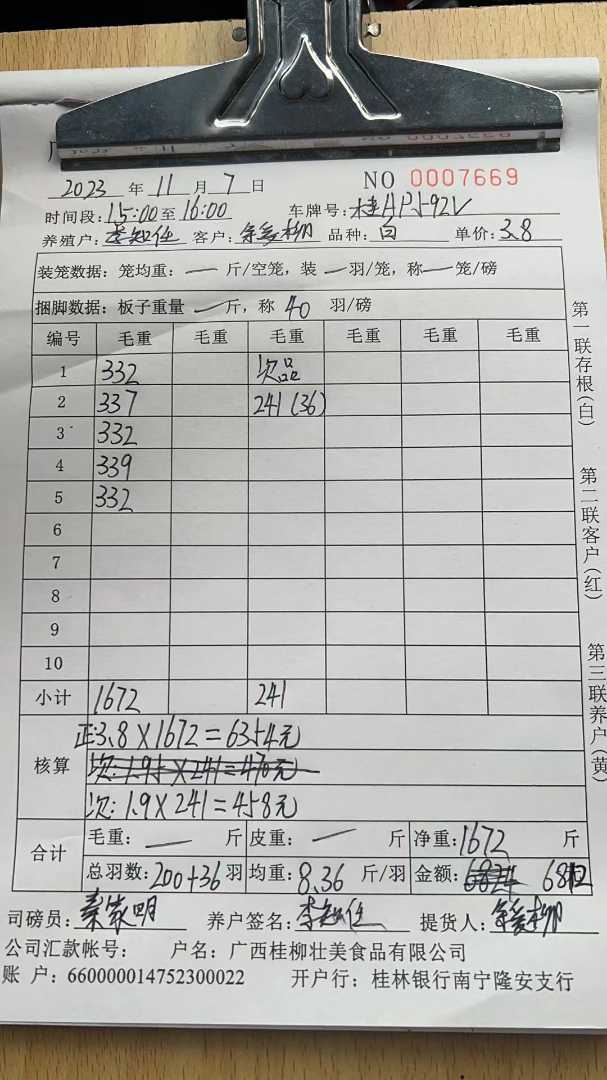 2023 年 11 月 7 日 NO 0007669
时间段: 15:00 至 16:00 车牌号:
养殖户: 李知任 客户: 品种: 白 单价: 3.8
装笼数据: 笼均重: — 斤/空笼, 装 — 羽/笼, 称 — 笼/磅
捆脚数据: 板子重量 — 斤, 称 40 羽/磅
编号 毛重 毛重 毛重 毛重 毛重 毛重
1 332 次品
2 337 241 (36)
3 332
4 339
5 332
6
7
8
9
10
小计 1672 241
核算
正:3.8×1672=6354元
次:1.95×241=470元
次:1.9×241=458元
合计
毛重: — 斤 皮重: — 斤 净重: 1672 斤
总羽数: 200+36 羽 均重: 8.36 斤/羽 金额: 6824 6812
司磅员: 秦家明 养户签名: 李知任 提货人:
公司汇款帐号: 户名: 广西桂柳壮美食品有限公司
账 户: 660000014752300022 开户行: 桂林银行南宁隆安支行
第一联存根(白)
第二联客户(红)
第三联养户(黄)